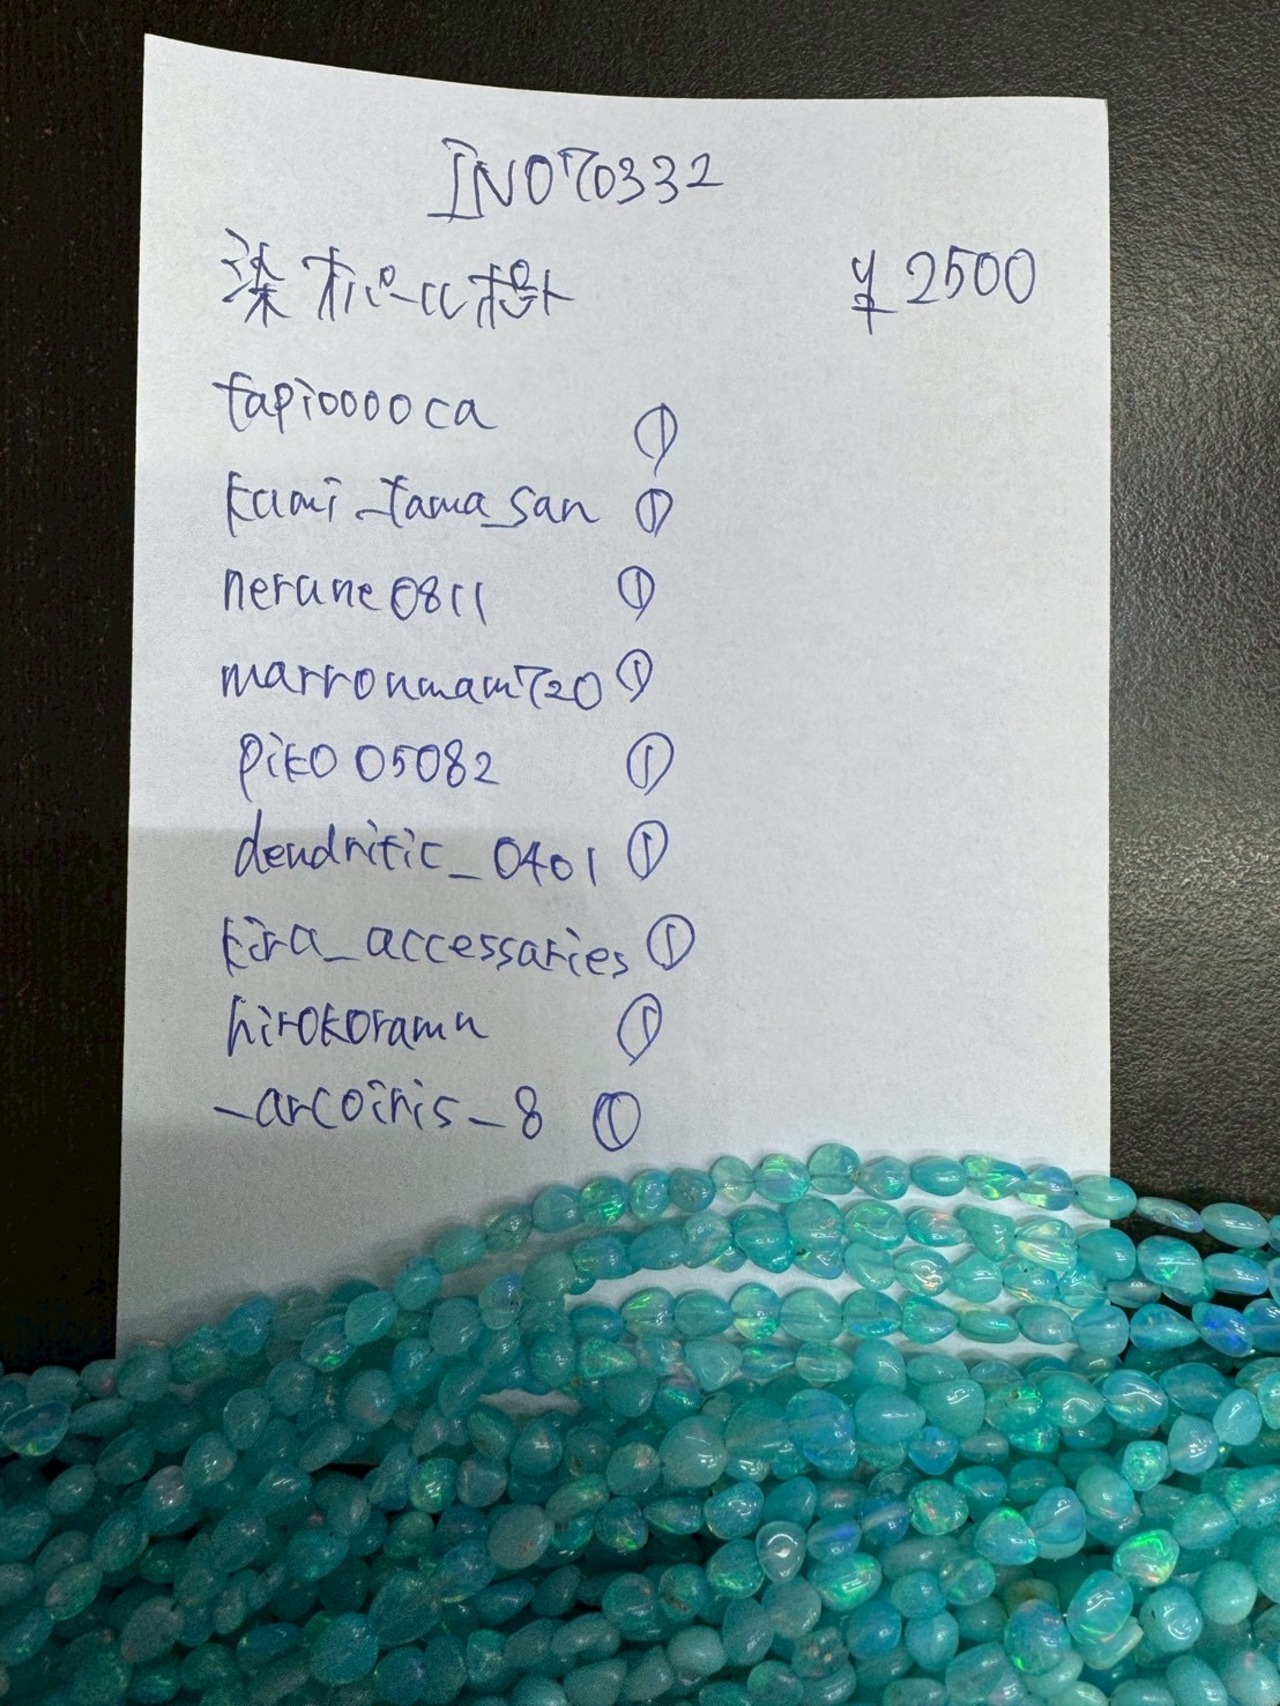 INO70332
染オパール樹 ¥2500
tapioooo ca ①
kami_tama_san ①
nerune0811 ①
marronmam720 ①
piko05082 ①
dendritic_0401 ①
kira_accessaries ①
hirokoramu ①
_arcoiris_8 ①